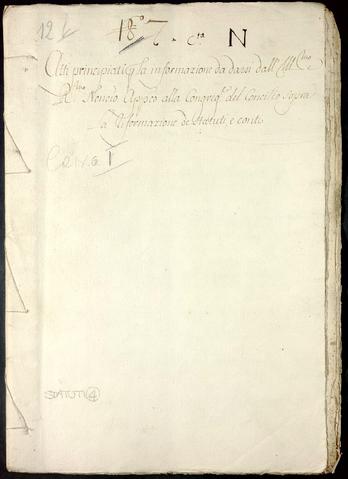 12
18° 7. Cta N
Atti principiati p la informazione da darsi dall' Illmo
Rmo Noncio Appco alla Congregne del Concilio sopra
la Riformazione de Statuti, e conti
I
STATUTI 4